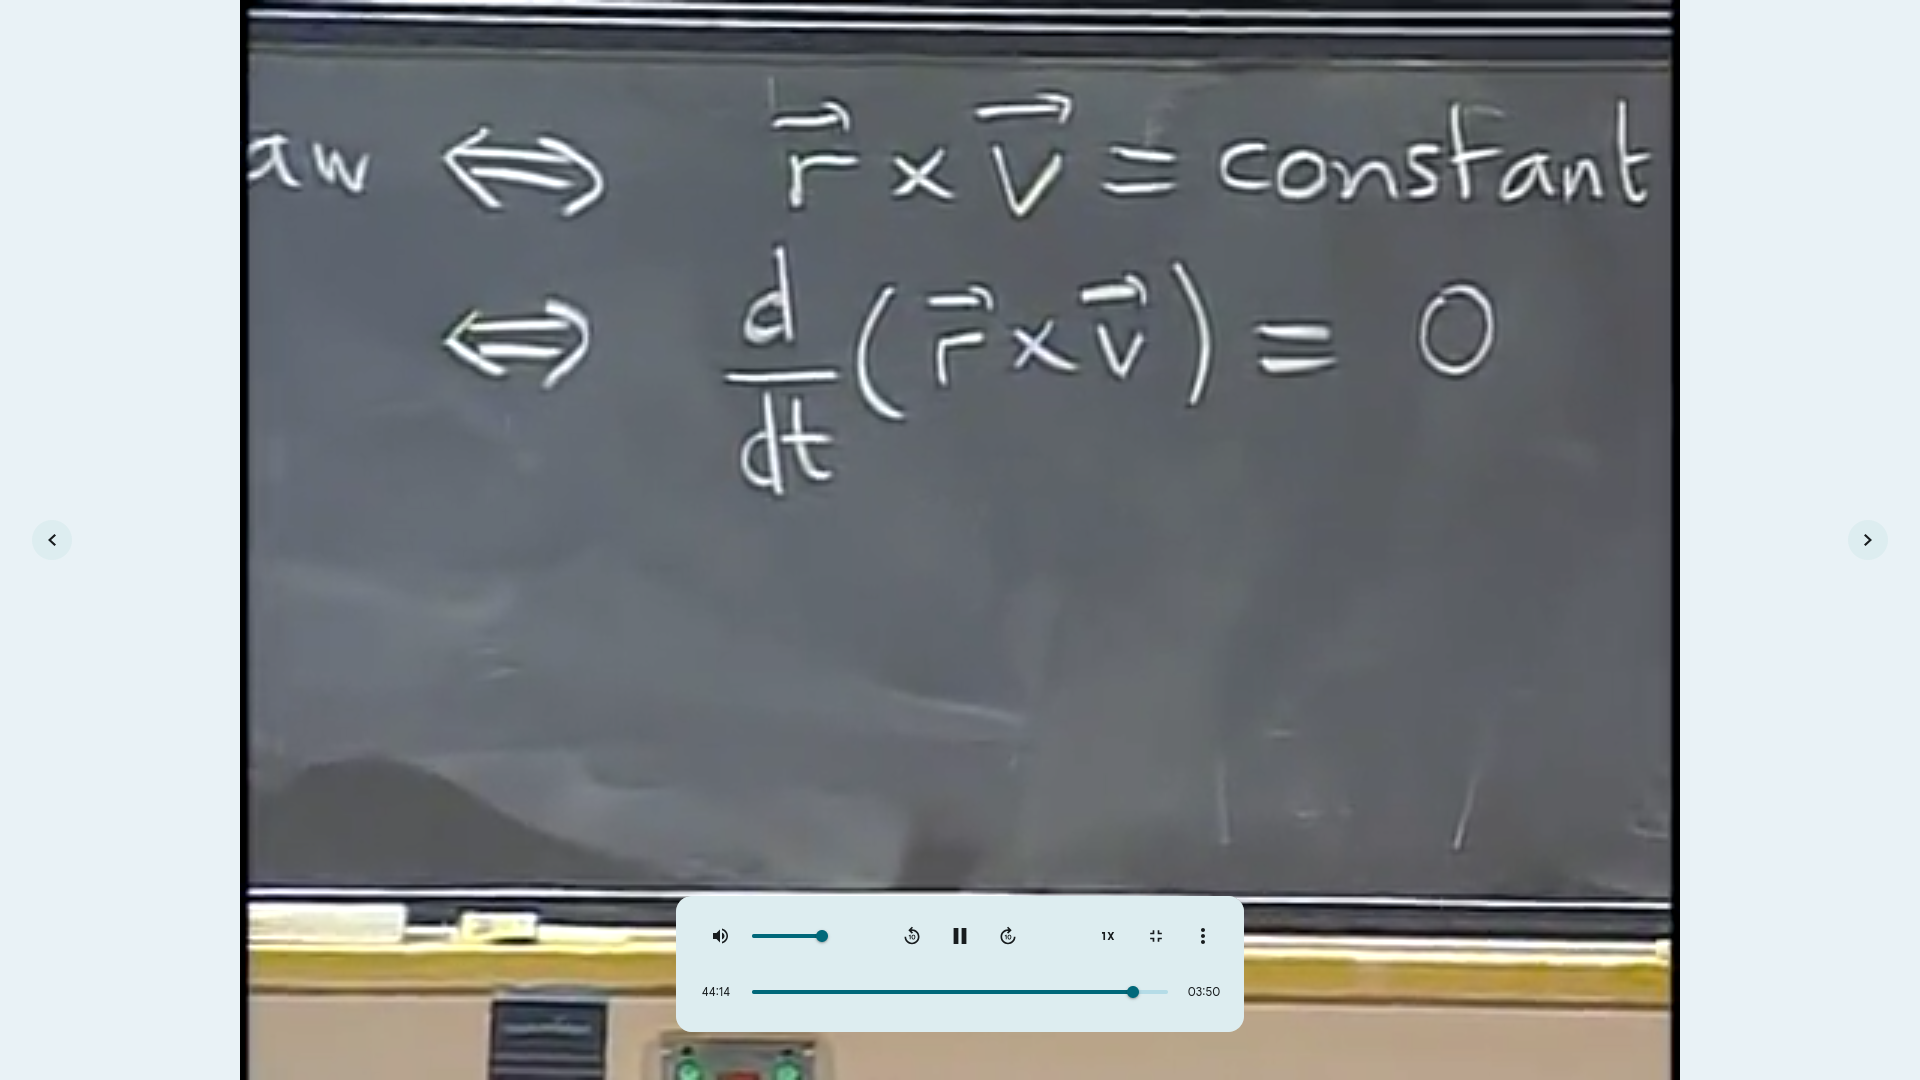 aw ⇔ r⃗ × v⃗ = constant
⇔ d/dt (r⃗ × v⃗) = 0
10 10 1X
44:14 03:50